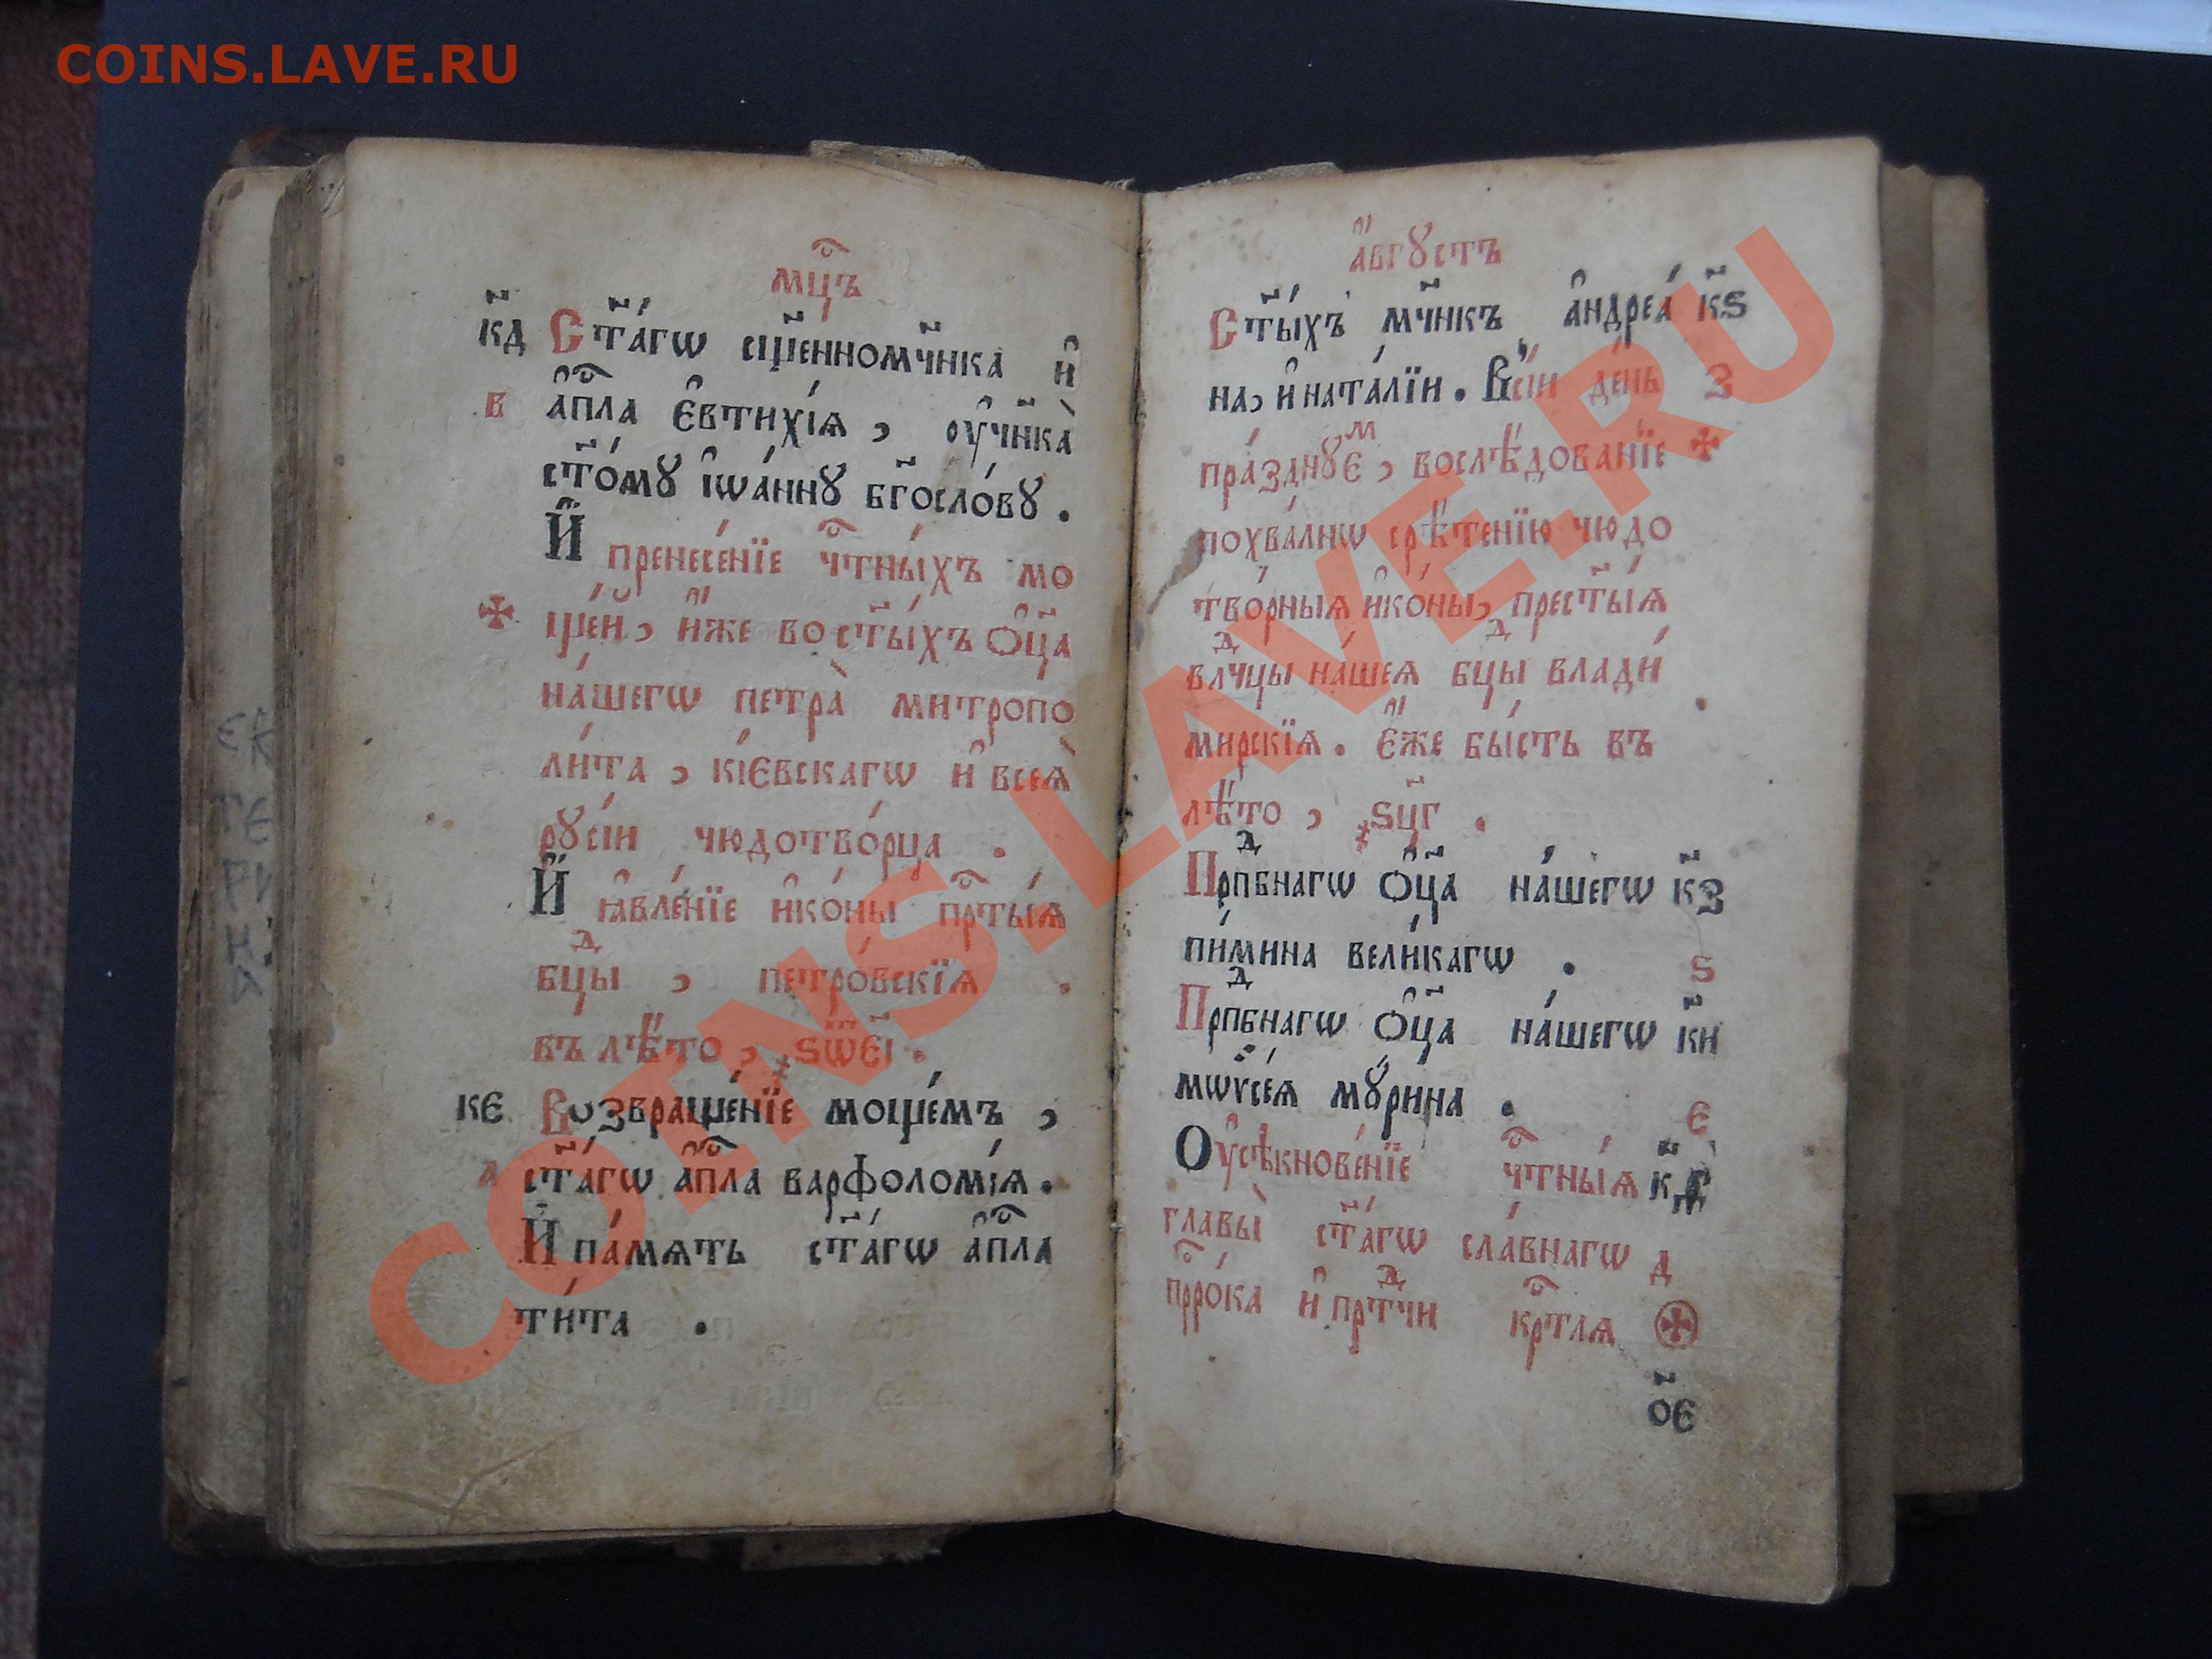 COINS.LAVE.RU
мцⷭ҇ъ
к҃д Ст҃а́гѡ сщ҃енномч҃нка и҆
в а҆пⷭ҇ла є҆втихі́ѧ , ᲂу҆ч҃нка̀
ст҃о́мꙋ і҆ѡа́ннꙋ бг҃осло́вꙋ .
И҆ пренесе́нїе чⷭ҇тны́хъ мо
ще́й , и҆́же во ст҃ы́хъ ѻ҆ц҃а
на́шегѡ петра̀ митропо
ли́та , кі́евскагѡ и҆ всеѧ̀
рꙋсі́и чюдотво́рца .
И҆ ꙗ҆вле́нїе и҆ко́ны прⷭ҇ты́ѧ
бцⷣы , петро́вскїѧ .
въ лѣ́то , ҂ѕѿє҃і .
кє Возвраще́нїе моще́мъ ,
л ст҃а́гѡ а҆пⷭ҇ла варфоломі́ѧ .
И҆ па́мѧть ст҃а́гѡ а҆пⷭ҇ла
ти́та .
а҆́вгꙋстъ
Ст҃ы́хъ мч҃нкъ а҆ндреа́ к҃ѕ
на , и҆ ната́лїи . Всі́и де́нь з
пра́зднꙋєⷨ , вослѣ́дованїе
похва́лнѡ срѣ́тенїю чюдо
тво́рныѧ и҆ко́ны , прест҃ы́ѧ
влⷣчцы на́шеѧ бцⷣы влади́
мирскїѧ . є҆́же бы́сть въ
лѣ́то , ҂ѕц҃г .
Прпⷣбнагѡ ѻ҆ц҃а на́шегѡ к҃з
пи́мина вели́кагѡ . ѕ
Прпⷣбнагѡ ѻ҆ц҃а на́шегѡ к҃и
мѡѷсе́ѧ мꙋ́рина . є
Оу҆сѣкнове́нїе чⷭ҇тны́ѧ
главы̀ ст҃а́гѡ сла́внагѡ д
прⷪ҇ро́ка и҆ прⷣтчи крⷭ҇тлѧ
о҃є
ЄК
ТЄ
РИ
Н
COINS.LAVE.RU